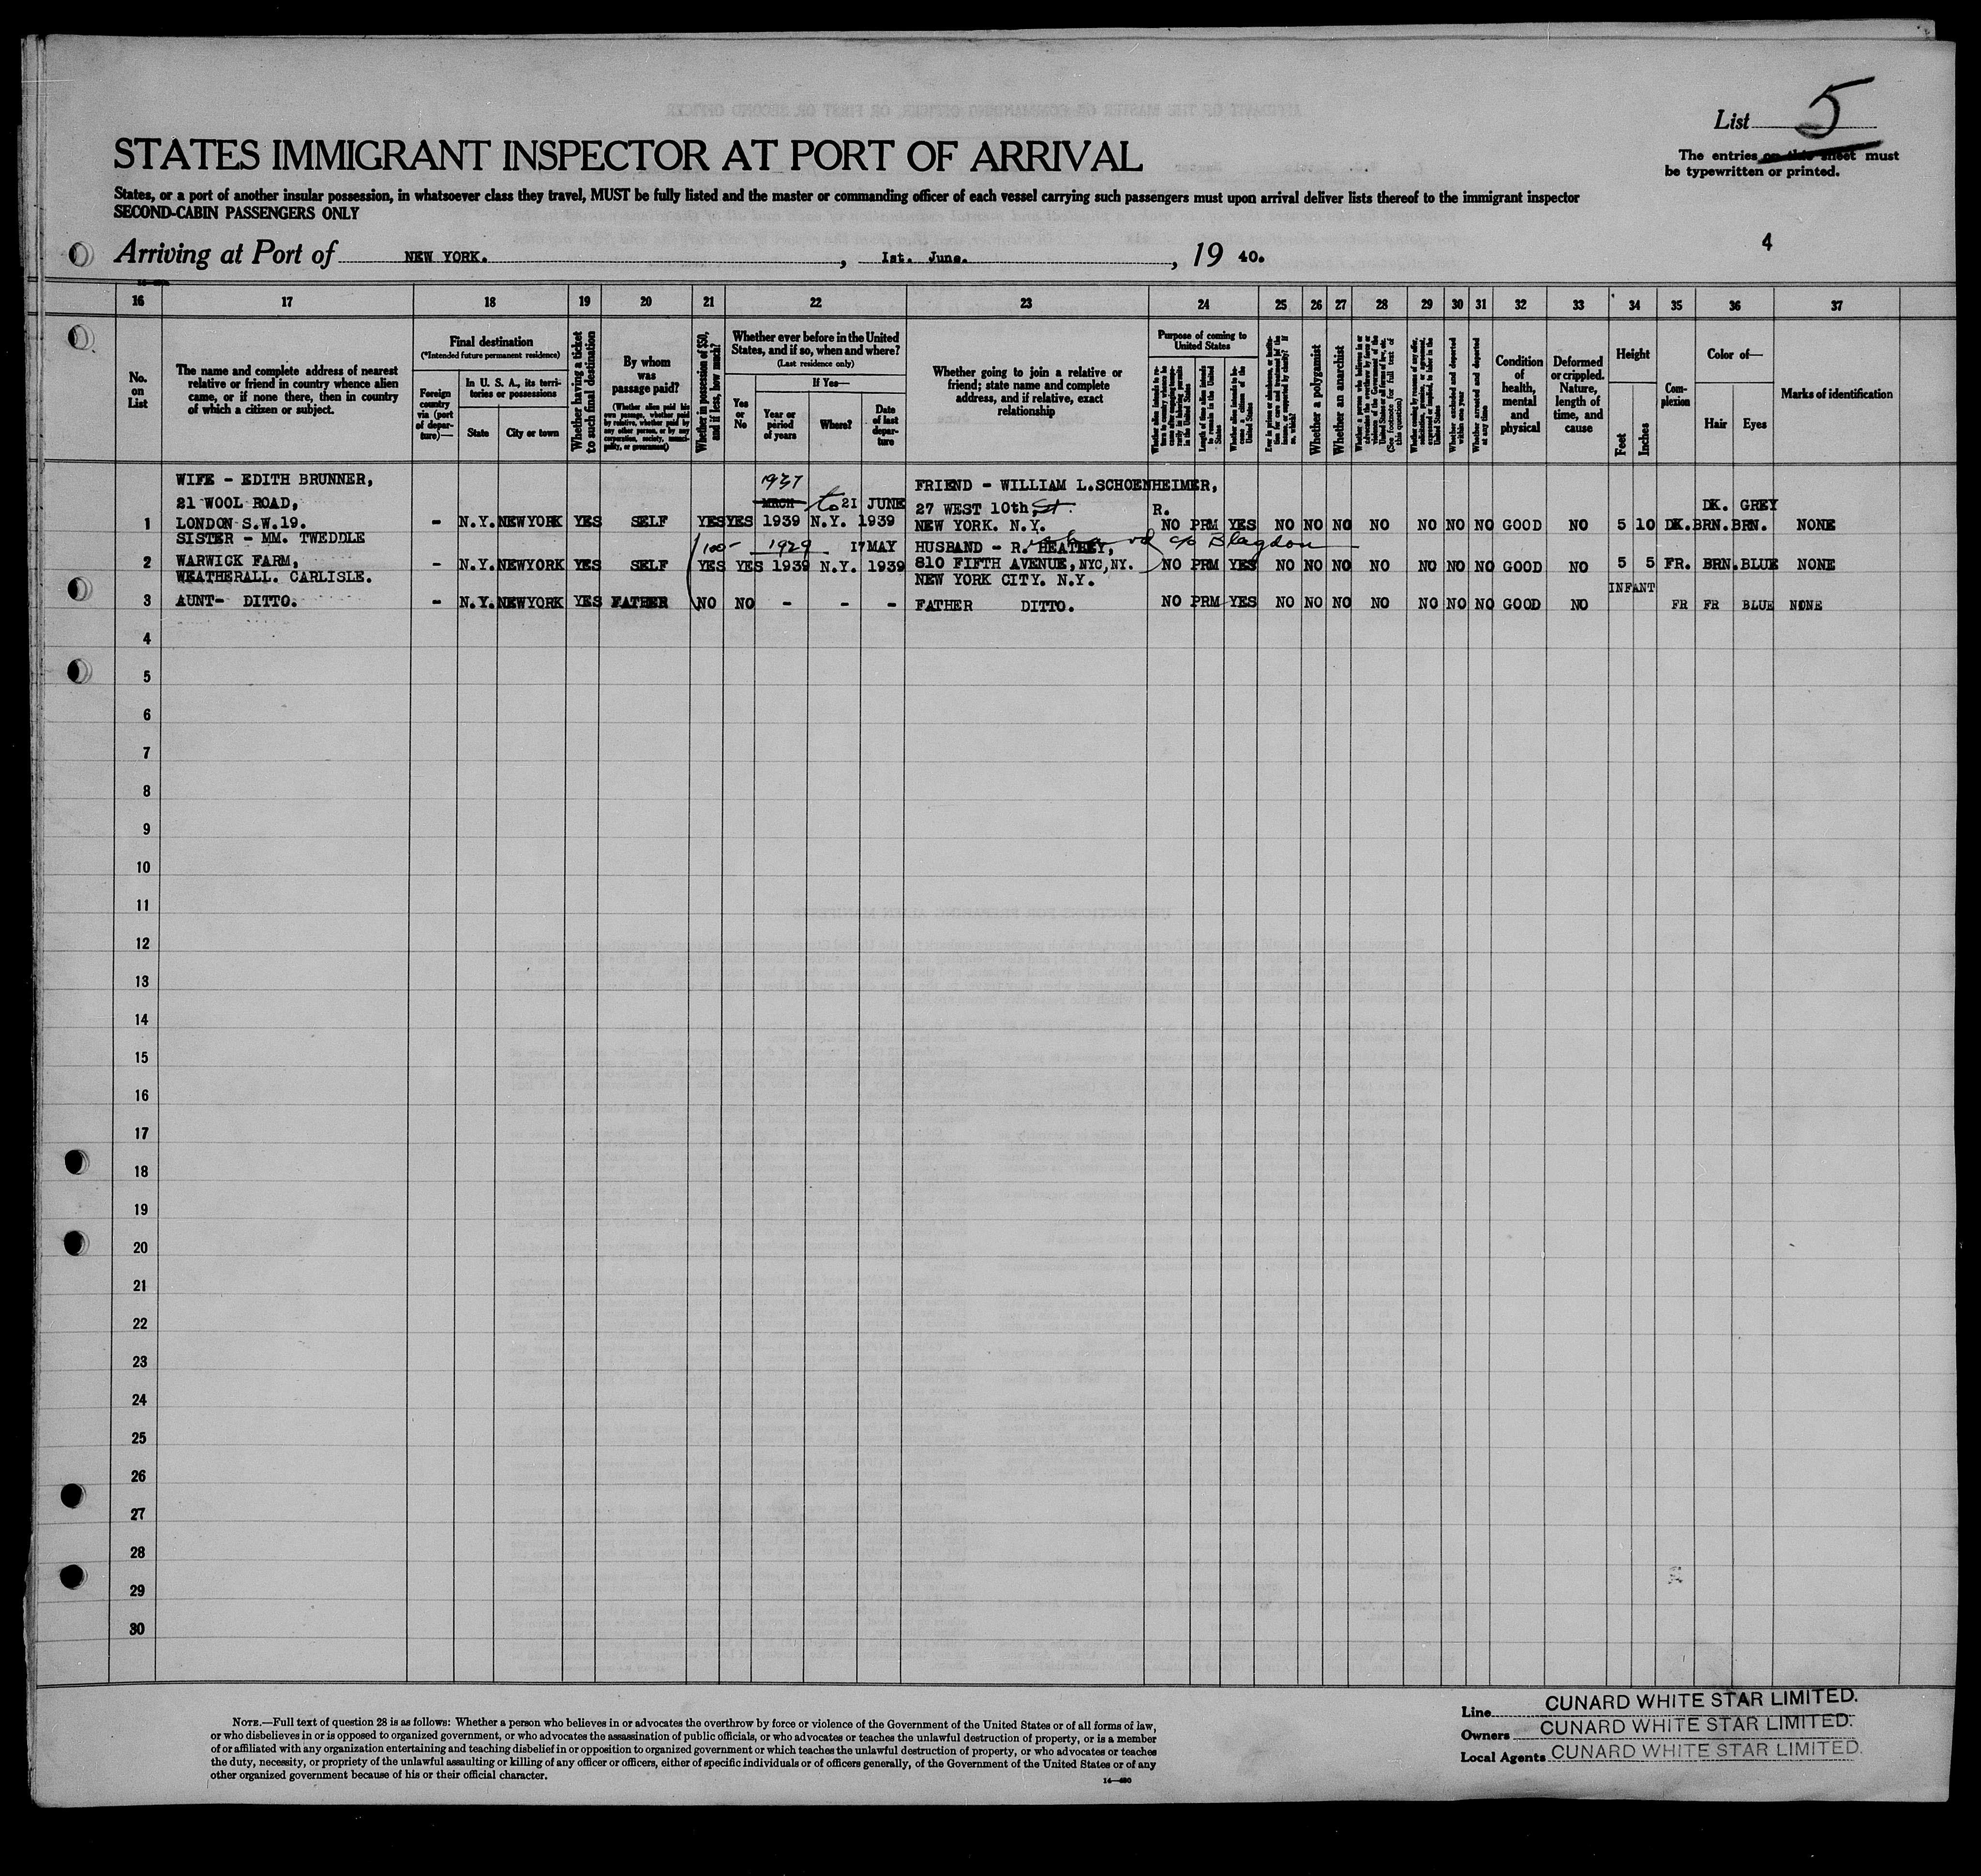 List 5
The entries on this sheet must
be typewritten or printed.
STATES IMMIGRANT INSPECTOR AT PORT OF ARRIVAL
States, or a port of another insular possession, in whatsoever class they travel, MUST be fully listed and the master or commanding officer of each vessel carrying such passengers must upon arrival deliver lists thereof to the immigrant inspector
SECOND-CABIN PASSENGERS ONLY
4
Arriving at Port of NEW YORK. , 1st. June. , 19 40.
16 17 18 19 20 21 22 23 24 25 26 27 28 29 30 31 32 33 34 35 36 37
No. on List
The name and complete address of nearest
relative or friend in country whence alien
came, or if none there, then in country
of which a citizen or subject.
Final destination
(*Intended future permanent residence)
Foreign country via (port of departure)—
In U. S. A., its territories or possessions
State
City or town
Whether having a ticket to such final destination
By whom was passage paid?
(Whether alien paid his own passage, whether paid by relative, whether paid by any other person, or by any corporation, society, municipality, or government)
Whether in possession of $50, and if less, how much?
Whether ever before in the United
States, and if so, when and where?
(Last residence only)
Yes or No
If Yes—
Year or period of years
Where?
Date of last departure
Whether going to join a relative or
friend; state name and complete
address, and if relative, exact
relationship
Purpose of coming to United States
Length of time alien intends to remain in the United States
Whether alien intends to become a citizen of the United States
Whether a polygamist
Whether an anarchist
(See footnote for full text of this question)
Whether excluded and deported within one year
Whether arrested and deported at any time
Condition of health, mental and physical
Deformed or crippled. Nature, length of time, and cause
Height
Feet
Inches
Complexion
Color of—
Hair
Eyes
Marks of identification
WIFE - EDITH BRUNNER, 1937 FRIEND - WILLIAM L.SCHOENHEIMER,
21 WOOL ROAD, MRCH to 21 JUNE 27 WEST 10th St. R. DK. GREY
1 LONDON S.W.19. - N.Y. NEWYORK YES SELF YES YES 1939 N.Y. 1939 NEW YORK. N.Y. NO PRM YES NO NO NO NO NO NO NO GOOD NO 5 10 DK. BRN. BRN. NONE
SISTER - MM. TWEDDLE 100- 1929 17 MAY HUSBAND - R. HEATLEY, c/o Blagdon
2 WARWICK FARM, - N.Y. NEWYORK YES SELF YES YES 1939 N.Y. 1939 810 FIFTH AVENUE, NYC, NY. NO PRM YES NO NO NO NO NO NO NO GOOD NO 5 5 FR. BRN. BLUE NONE
WEATHERALL. CARLISLE. NEW YORK CITY. N.Y. INFANT
3 AUNT- DITTO. - N.Y. NEWYORK YES FATHER NO NO - - - FATHER DITTO. NO PRM YES NO NO NO NO NO NO NO GOOD NO FR FR BLUE NONE
4
5
6
7
8
9
10
11
12
13
14
15
16
17
18
19
20
21
22
23
24
25
26
27
28
29
30
NOTE.—Full text of question 28 is as follows: Whether a person who believes in or advocates the overthrow by force or violence of the Government of the United States or of all forms of law,
or who disbelieves in or is opposed to organized government, or who advocates the assassination of public officials, or who advocates or teaches the unlawful destruction of property, or is a member
of or affiliated with any organization entertaining and teaching disbelief in or opposition to organized government or which teaches the unlawful destruction of property, or who advocates or teaches
the duty, necessity, or propriety of the unlawful assaulting or killing of any officer or officers, either of specific individuals or of officers generally, of the Government of the United States or of any
other organized government because of his or their official character.
Line CUNARD WHITE STAR LIMITED.
Owners CUNARD WHITE STAR LIMITED.
Local Agents CUNARD WHITE STAR LIMITED.